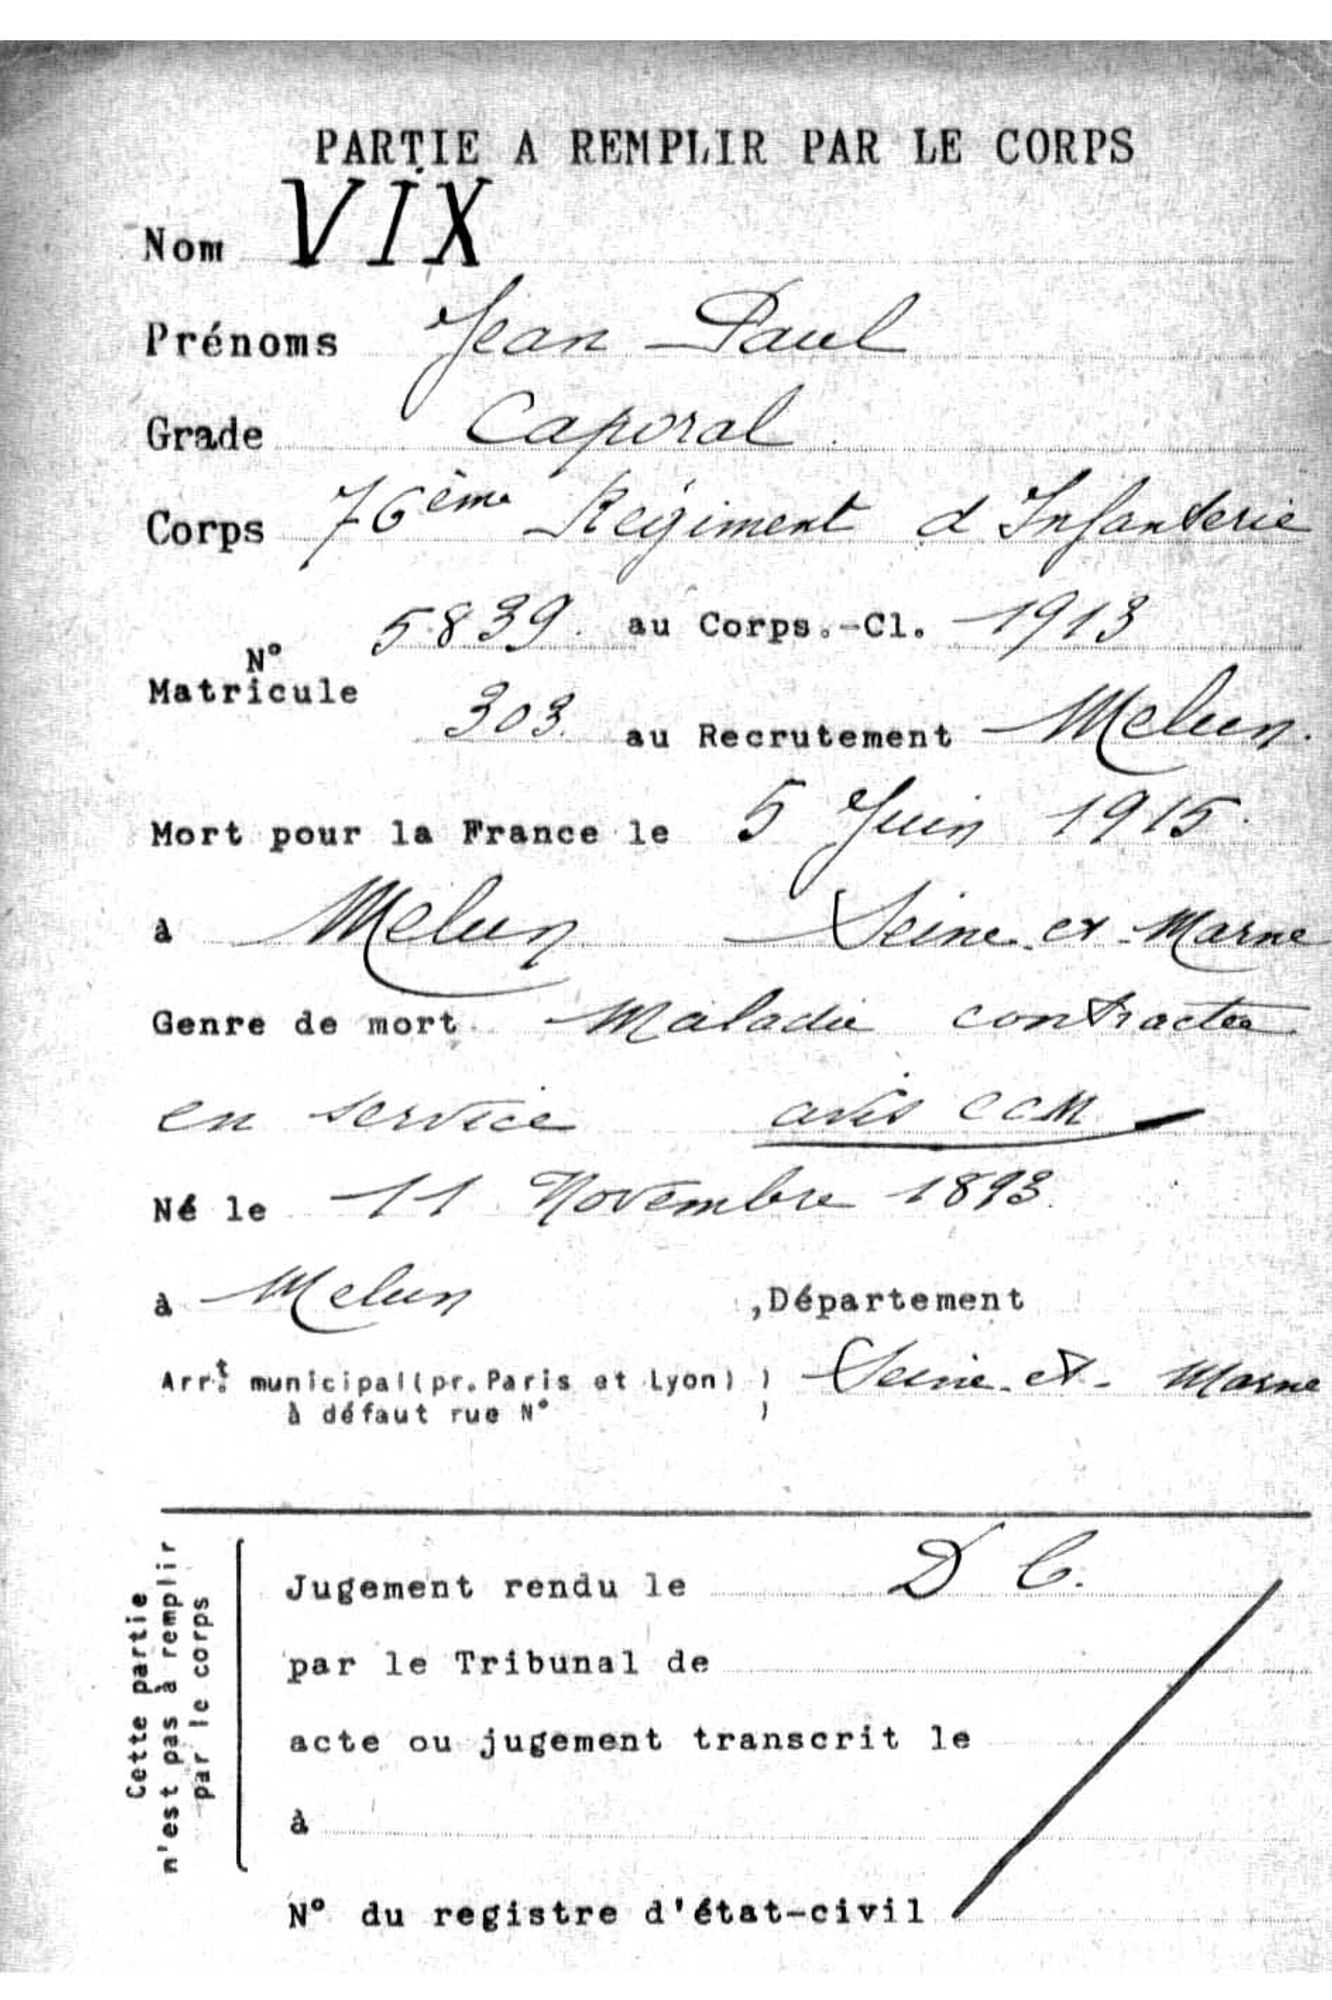 PARTIE A REMPLIR PAR LE CORPS
Nom VIX
Prénoms Jean Paul
Grade Caporal
Corps 76ème Régiment d'Infanterie
5839. au Corps.-Cl. 1913
N°
Matricule
303. au Recrutement Melun.
Mort pour la France le 5 Juin 1915.
à Melun Seine et Marne
Genre de mort Maladie contractée
en service avis CCM
Né le 11 Novembre 1893.
à Melun ,Département
Arr.t municipal (pr. Paris et Lyon) ) Seine-et-Marne
à défaut rue N° )
Cette partie
n'est pas à remplir
par le corps
Jugement rendu le D C.
par le Tribunal de
acte ou jugement transcrit le
à
N° du registre d'état-civil